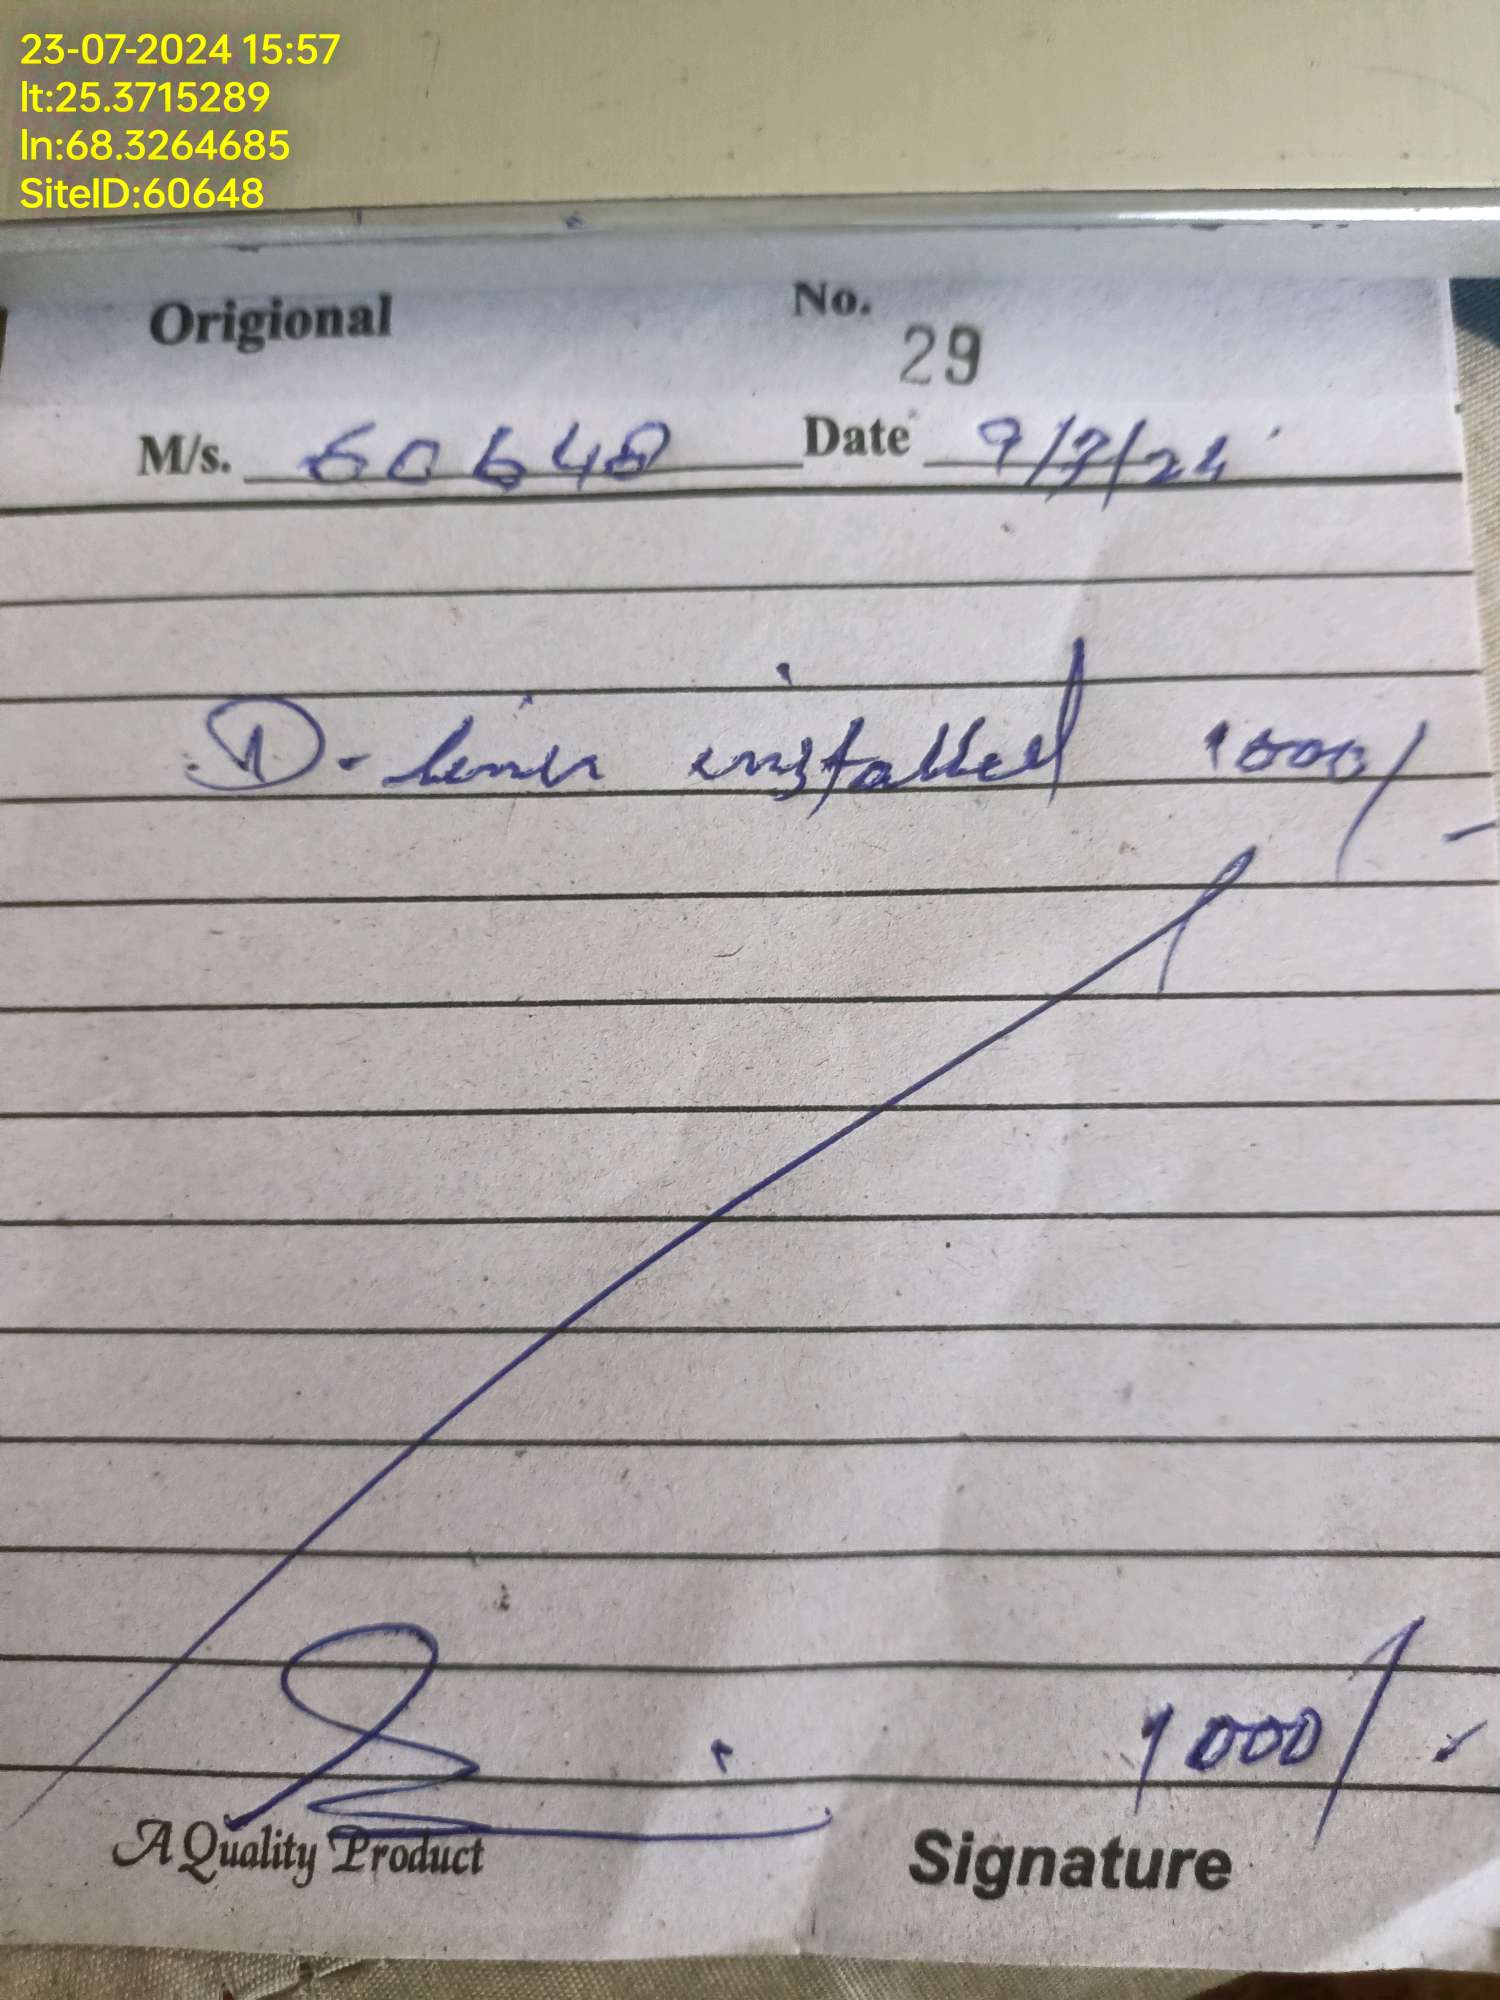 23-07-2024 15:57
lt:25.3715289
ln:68.3264685
SiteID:60648
Origional No. 29
M/s. 60648 Date 9/7/24
① installed 1000/-
1000/-
A Quality Product Signature